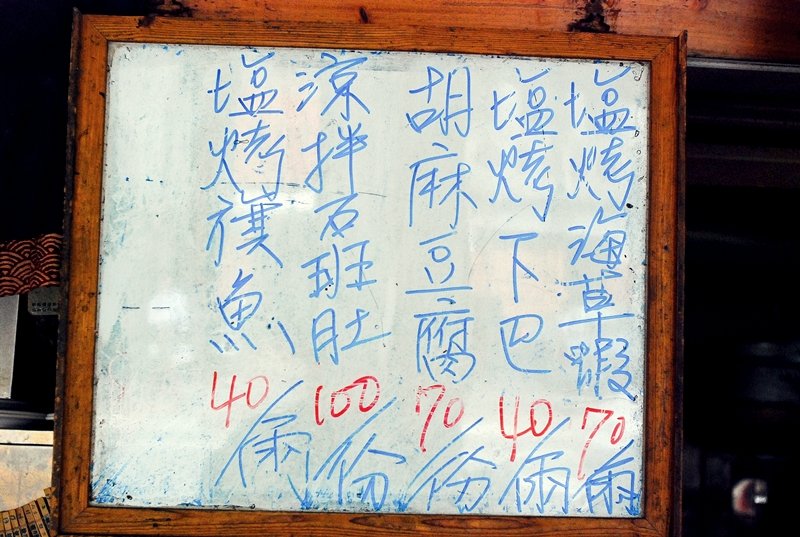 塩烤海草蝦70/兩
塩烤下巴40/兩
胡麻豆腐70/份
涼拌石班肚100/份
塩烤魚40/兩